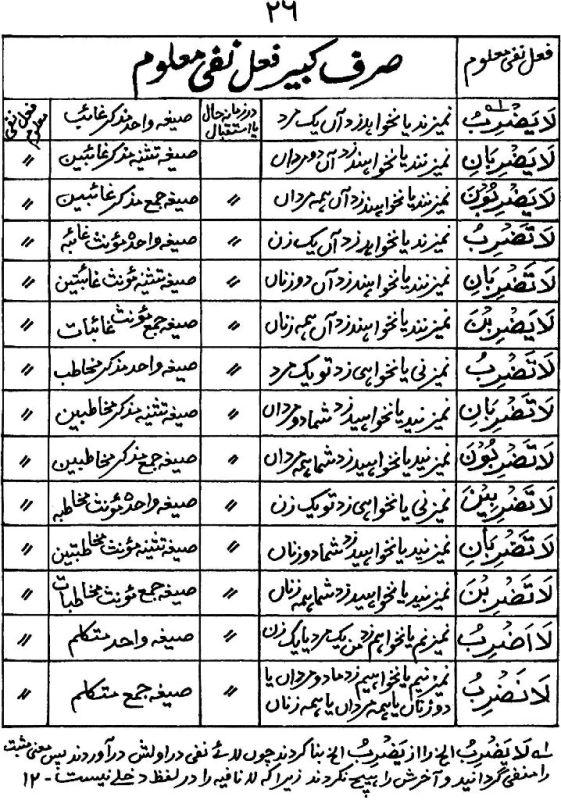 ۲۶
فعل نفی معلوم صرف کبیر فعل نفی معلوم
لَا یَضْرِبُ ؂۱ نمیزند یا نخواهد زد آں یک مرد در زمانہ حال یا استقبال صیغہ واحد مذکر غائب فعل نفی معلوم
لَا یَضْرِبَانِ نمیزنند یا نخواهند زد آں دو مرداں صیغہ تثنیہ مذکر غائبین 〃
لَا یَضْرِبُوْنَ نمیزنند یا نخواهند زد آں ہمہ مرداں 〃 صیغہ جمع مذکر غائبین 〃
لَا تَضْرِبُ نمیزند یا نخواهد زد آں یک زن 〃 صیغہ واحدہ مؤنث غائبہ 〃
لَا تَضْرِبَانِ نمیزنند یا نخواهند زد آں دو زناں 〃 صیغہ تثنیہ مؤنث غائبتین 〃
لَا یَضْرِبْنَ نمیزنند یا نخواهند زد آں ہمہ زناں 〃 صیغہ جمع مؤنث غائبات 〃
لَا تَضْرِبُ نمیزنی یا نخواهی زد تو یک مرد 〃 صیغہ واحد مذکر مخاطب 〃
لَا تَضْرِبَانِ نمیزنید یا نخواهید زد شما دو مرداں 〃 صیغہ تثنیہ مذکر مخاطبین 〃
لَا تَضْرِبُوْنَ نمیزنید یا نخواهید زد شما ہمہ مرداں 〃 صیغہ جمع مذکر مخاطبین 〃
لَا تَضْرِبِیْنَ نمیزنی یا نخواهی زد تو یک زن 〃 صیغہ واحدہ مؤنث مخاطبہ 〃
لَا تَضْرِبَانِ نمیزنید یا نخواهید زد شما دو زناں 〃 صیغہ تثنیہ مؤنث مخاطبتین 〃
لَا تَضْرِبْنَ نمیزنید یا نخواهید زد شما ہمہ زناں 〃 صیغہ جمع مؤنث مخاطبات 〃
لَا اَضْرِبُ نمیزنم یا نخواهم زد من یک مرد یا یک زن 〃 صیغہ واحد متکلم 〃
لَا نَضْرِبُ نمیزنیم یا نخواهیم زد ما دو مرداں یا 〃 صیغہ جمع متکلم 〃
دو زناں یا ہمہ مرداں یا ہمہ زناں
؂۱ لَا یَضْرِبُ الخ را از یَضْرِبُ الخ بنا کردند چوں لائے نفی در اولش در آوردند پس معنی مثبت
را منفی گردانید و آخرش را ہیچ نکردند زیرا کہ لا نافیہ را در لفظ دخلے نیست ۔ ۱۲